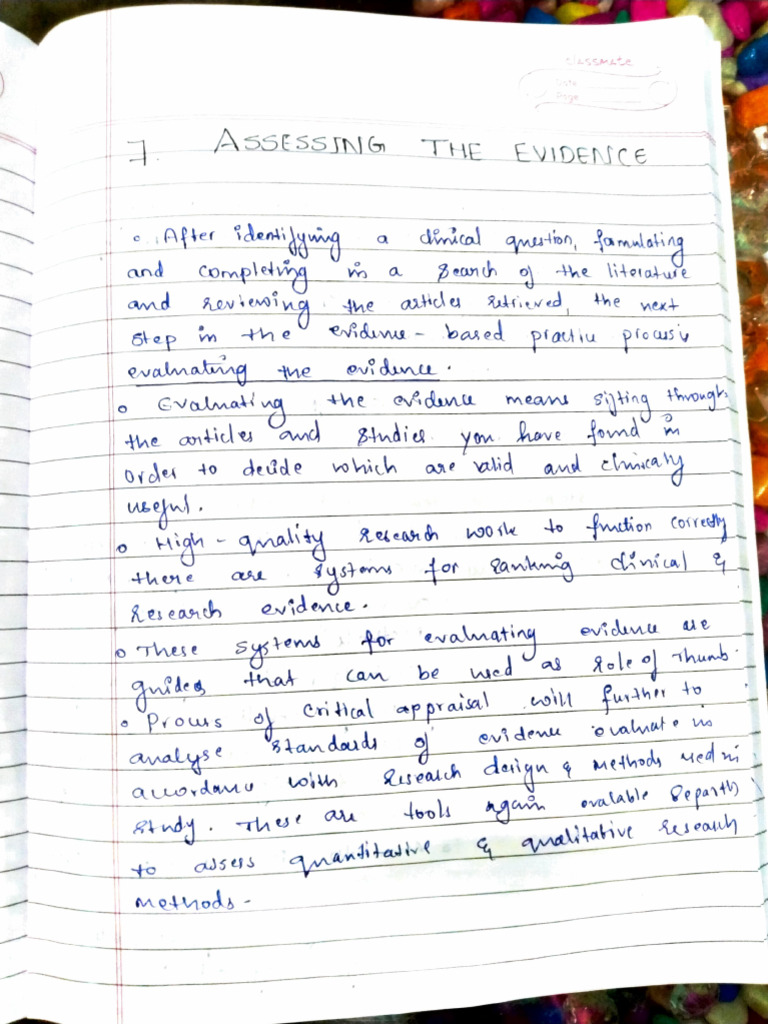 classmate
Date
Page
7. ASSESSING THE EVIDENCE
After identifying a clinical question, formulating
and completing in a search of the literature
and reviewing the articles retrieved, the next
step in the evidence - based practice process is
evaluating the evidence.
Evaluating the evidence means sifting through
the articles and studies you have found in
order to decide which are valid and clinically
useful.
High - quality research work to function correctly
there are systems for ranking clinical &
research evidence.
These systems for evaluating evidence are
guides that can be used as role of Thumb.
Process of critical appraisal will further to
analyse standards of evidence evaluate in
accordance with research design & methods used in
study. These are tools again avalable
to assess quantitative & qualitative research
methods -